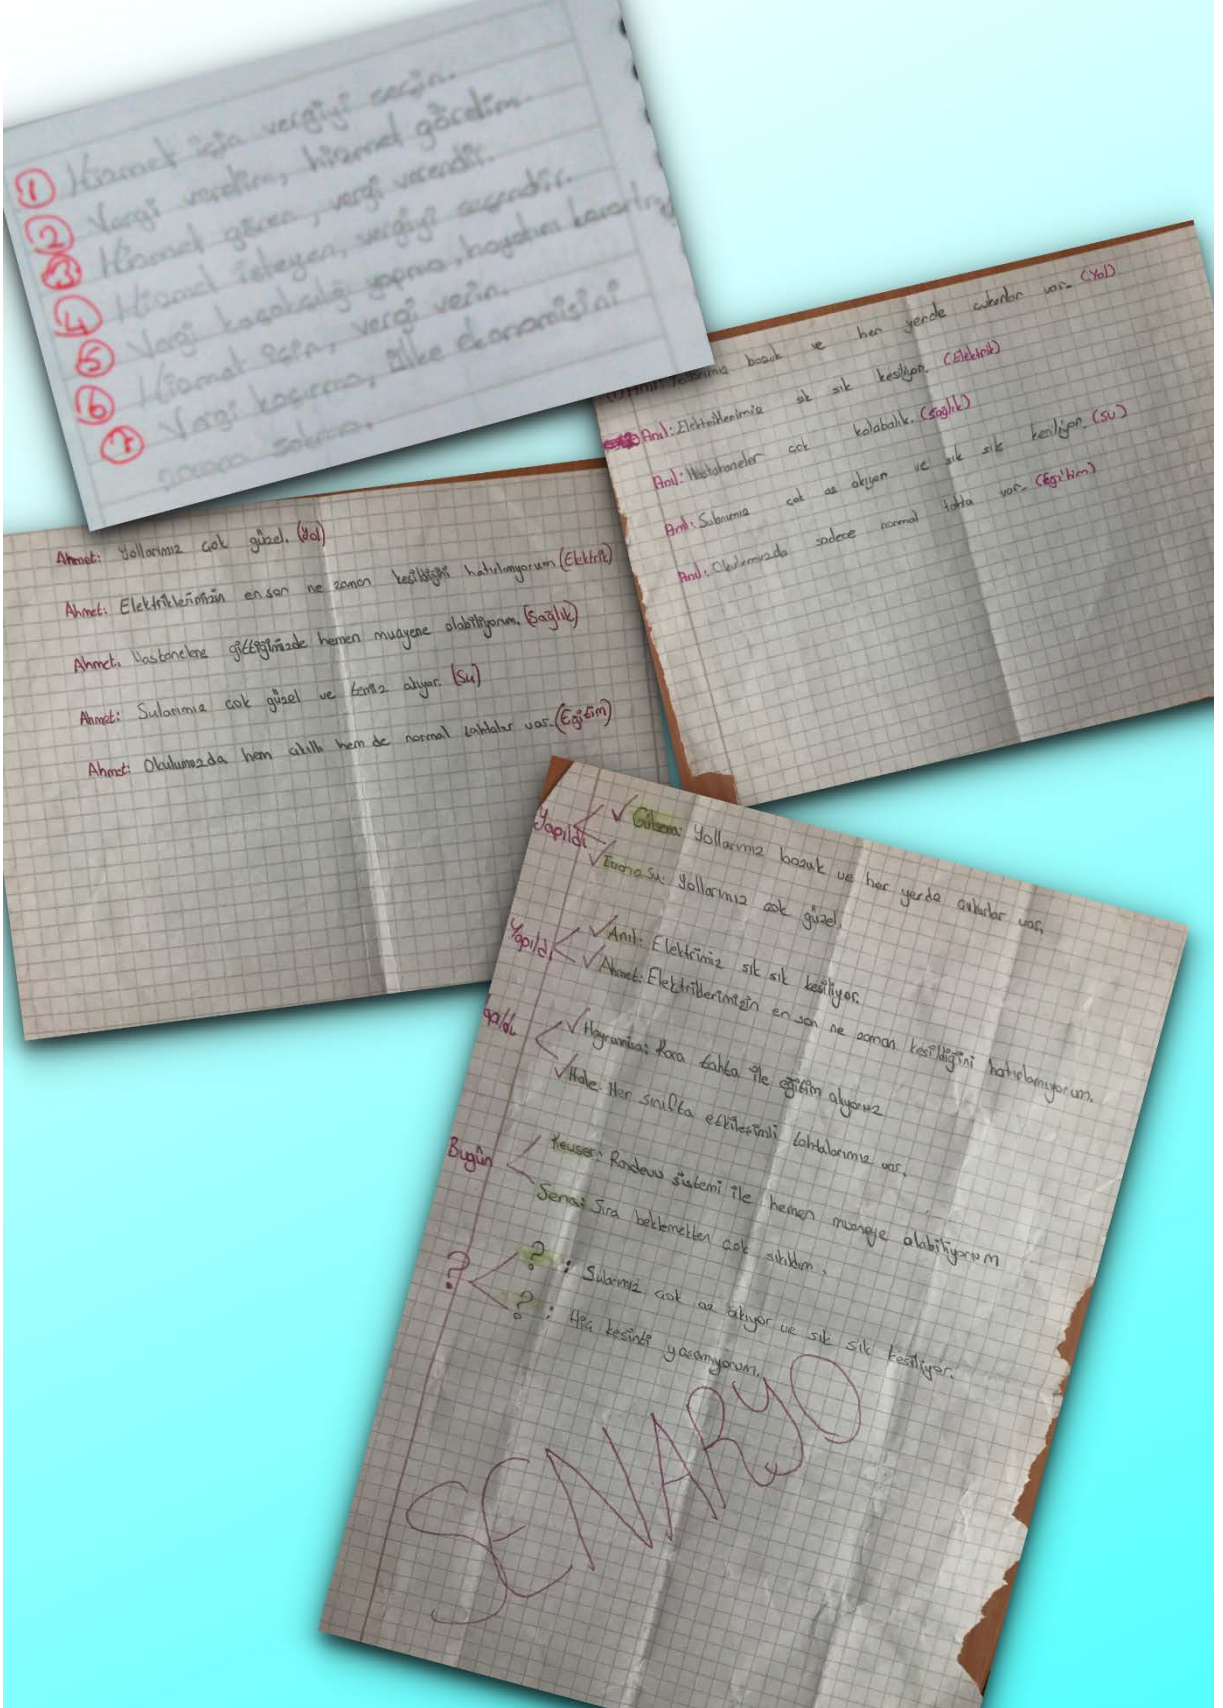 ① Hizmet için vergiyi seçin.
② Vergi verelim, hizmet görelim.
③ Hizmet gören, vergi verendir.
④ Hizmet isteyen, vergiyi seçendir.
⑤ Vergi kaçakçılığı yapma, hayatını karartma
⑥ Hizmet için, vergi verin.
⑦ Vergi kaçırma, ülke ekonomisini
zarara sokma.
bozuk ve her yerde çukurlar var. (Yol)
Anıl: Elektriklerimiz sık sık kesiliyor. (Elektrik)
Anıl: Hastahaneler çok kalabalık. (Sağlık)
Anıl: Sularımız çok az akıyor ve sık sık kesiliyor. (Su)
Anıl: Okulumuzda sadece normal tahta var. (Eğitim)
Ahmet: Yollarımız çok güzel. (Yol)
Ahmet: Elektriklerimizin en son ne zaman kesildiğini hatırlamıyorum. (Elektrik)
Ahmet: Hastanelere gittiğimizde hemen muayene olabiliyorum. (Sağlık)
Ahmet: Sularımız çok güzel ve temiz akıyor. (Su)
Ahmet: Okulumuzda hem akıllı hem de normal tahtalar var. (Eğitim)
Yapıldı ✓ Gülsema: Yollarımız bozuk ve her yerde çukurlar var.
✓ Su: Yollarımız çok güzel.
Yapıldı ✓ Anıl: Elektrimiz sık sık kesiliyor.
✓ Ahmet: Elektriklerimizin en son ne zaman kesildiğini hatırlamıyorum.
✓ Hayrunnisa: Kara tahta ile eğitim alıyoruz
✓ Hale: Her sınıfta etkileşimli tahtalarımız var.
Bugün Kevser: Randevu sistemi ile hemen muaneye olabiliyorum
Sena: Sıra beklemekten çok sıkıldım.
? ? : Sularımız çok az akıyor ve sık sık kesiliyor.
? : Hiç kesinti yaşamıyorum.
SENARYO